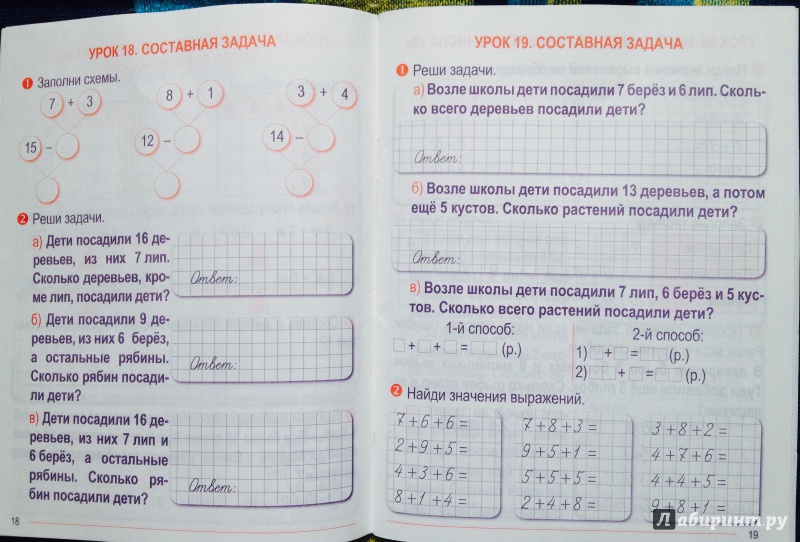 УРОК 18. СОСТАВНАЯ ЗАДАЧА
1 Заполни схемы.
7 + 3
8 + 1
3 + 4
15 –
12 –
14 –
2 Реши задачи.
а) Дети посадили 16 де-
ревьев, из них 7 лип.
Сколько деревьев, кро-
ме лип, посадили дети?
Ответ:
б) Дети посадили 9 де-
ревьев, из них 6 берёз,
а остальные рябины.
Сколько рябин посади-
ли дети?
Ответ:
в) Дети посадили 16 де-
ревьев, из них 7 лип и
6 берёз, а остальные
рябины. Сколько ря-
бин посадили дети?
Ответ:
18
УРОК 19. СОСТАВНАЯ ЗАДАЧА
1 Реши задачи.
а) Возле школы дети посадили 7 берёз и 6 лип. Сколь-
ко всего деревьев посадили дети?
Ответ:
б) Возле школы дети посадили 13 деревьев, а потом
ещё 5 кустов. Сколько растений посадили дети?
Ответ:
в) Возле школы дети посадили 7 лип, 6 берёз и 5 кус-
тов. Сколько всего растений посадили дети?
1-й способ:
+ + = (р.)
2-й способ:
1) + = (р.)
2) + = (р.)
2 Найди значения выражений.
7 + 6 + 6 =
2 + 9 + 5 =
4 + 3 + 6 =
8 + 1 + 4 =
7 + 8 + 3 =
9 + 5 + 1 =
5 + 5 + 5 =
2 + 4 + 8 =
3 + 8 + 2 =
4 + 7 + 6 =
4 + 4 + 5 =
9 + 8 + 1 =
19
Лабиринт.ру